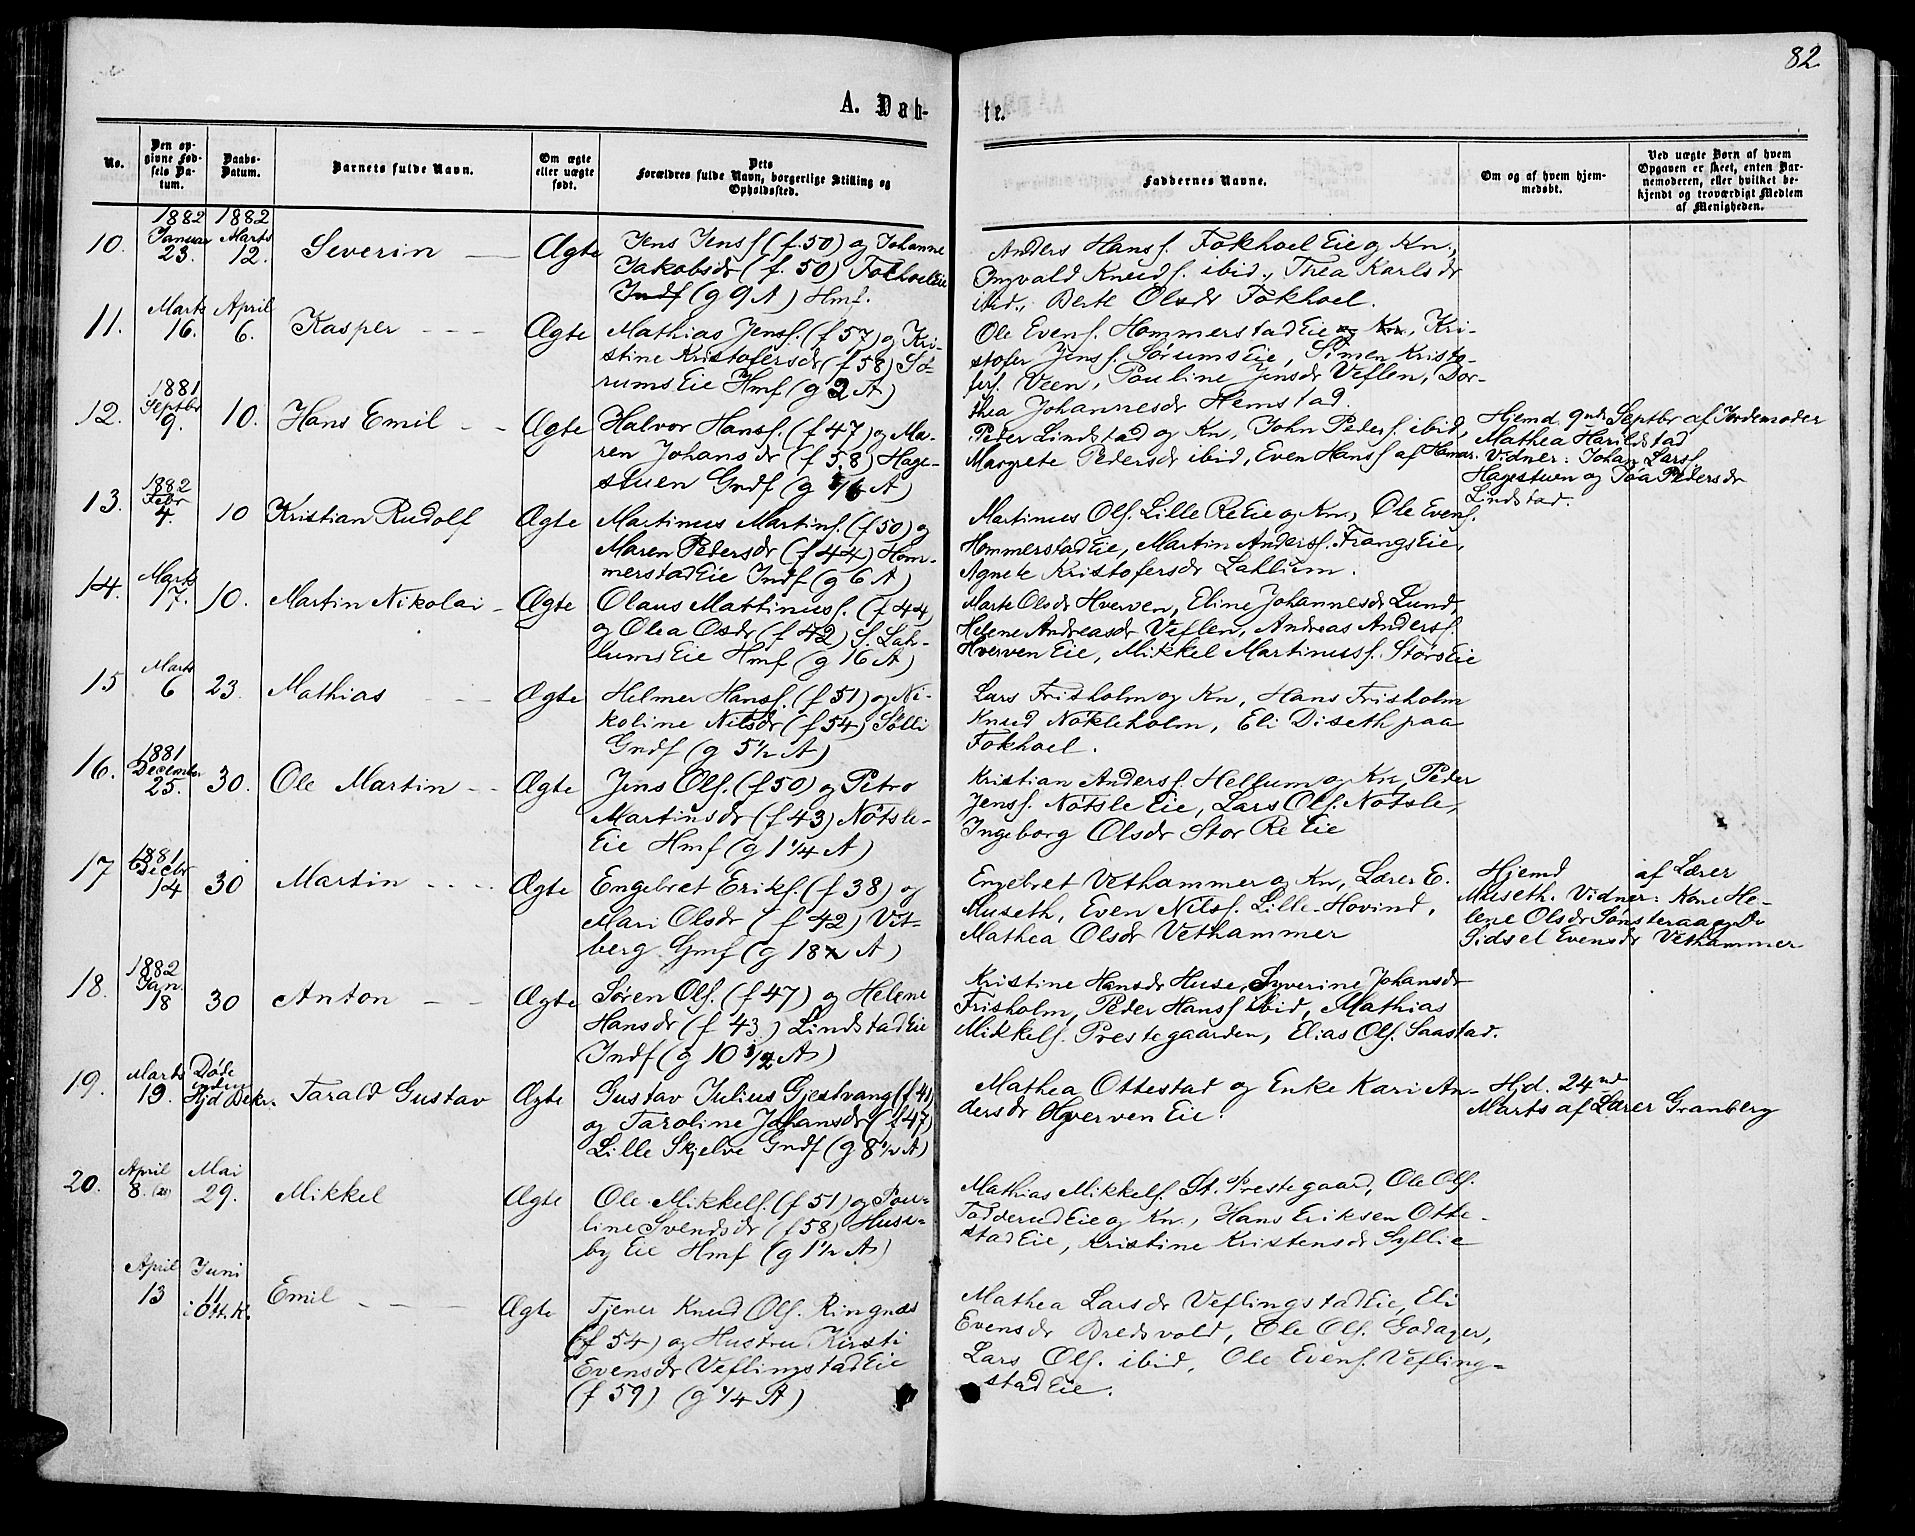 82
A. Døb-
te.
No.
Den op-
givne Fød-
sels Da-
tum.
Daabs-
Datum.
Barnets fulde Navn.
Om ægte
eller uægte
født.
Dets
Forældres fulde Navn, borgerlige Stilling og
Opholdssted.
Faddernes Navne.
Om og af hvem hjem-
medøbt.
Ved uægte Børn af hvem
Opgaven er skeet, enten Bar-
nemoderen, eller hvilket be-
kjendt og troværdigt Medlem
af Menigheden.
10.
1882
Januar
23.
1882
Marts
12.
Severin
Ægte
Jens Jensf (f. 50) og Johanne
Jakobsdr (f. 50) Fokhoel Eie
Indf (g 9 A) Hmf.
Anders Hansf. Fokhoel Eie og Kn.,
Ingvald Knudsf. ibid., Thea Karlsdr
ibid., Berte Olsdr Fokhoel.
11.
Marts
16.
April
6.
Kasper
Ægte
Mathias Jensf. (f 57) og Kri-
stine Kristofersdr (f 58) Sø-
rums Eie Hmf (g 2 A)
Ole Evensf. Hommerstad Eie og Kn., Kri-
stofer Jensf. Sørums Eie, Simen Kristo-
fersf. Veen, Pauline Jensdr Veflen, Dor-
thea Johannesdr Hemstad.
12.
1881
Septbr
9.
10.
Hans Emil
Ægte
Halvor Hansf. (f 47) og Ma-
ren Johansdr (f 58) Hage-
stuen Gndf (g 1/6 A)
Peder Lindstad og Kn, John Pedersf. ibid,
Margrete Pedersdr ibid, Even Hansf af Hamar.
Hjemd. 9nde Septbr af Jordemoder
Mathea Harildstad
Vidner: Johan Larsf
Hagestuen og Toa Pedersdr
Lindstad.
13.
1882
Febr
4.
10
Kristian Rudolf
Ægte
Martinus Martinsf. (f 50) og
Maren Pedersdr (f 44) Hom-
merstad Eie Indf (g 6 A)
Martinus Olsf. Lille Re Eie og Kn., Ole Evensf.
Hommerstad Eie, Martin Andersf. Frangs Eie,
Agnete Kristofersdr Lahlum.
14.
Marts
17.
10.
Martin Nikolai
Ægte
Olaus Mattinusf. (f 44)
og Olea Osdr (f 42) S. Lah-
lums Eie Hmf (g 16 A)
Marte Olsdr Hverven, Eline Johannesdr Lund,
Helene Andreasdr Veflen, Andreas Andersf.
Hverven Eie, Mikkel Martinusf. Størs Eie
15
Marts
6
23.
Mathias
Ægte
Helmer Hansf. (f 51) og Ni-
koline Nilsdr (f 54) Sølli
Gndf (g 5 1/2 A)
Lars Frisholm og Kn, Hans Frisholm
Knud Nøkleholm, Eli Diseth paa
Fokhoel.
16.
1881
December
25.
30.
Ole Martin
Ægte
Jens Olsf. (f 50) og Petro
Martinsdr (f 43) Nøtsle-
Eie Hmf (g 1 1/4 A)
Kristian Andersf. Hellum og Kn, Peder
Jensf. Nøtsle Eie, Lars Olsf. Nøtsle,
Ingeborg Olsdr Stor Re Eie
17
1881
Decbr
14
30
Martin
Ægte
Engebret Eriksf. (f 38) og
Mari Olsdr (f 42) Vet-
berg Gmf (g 18 A)
Engebret Vethammer og Kn, Lærer E.
Museth, Even Nilsf. Lille-Hovind,
Mathea Olsdr Vethammer
Hjemd af Lærer
Museth. Vidner: Kone He-
lene Olsdr Sønsteraa og
Sidsel Evensdr Vethammer
18.
1882
Jan.
18
30
Anton
Ægte
Søren Olsf. (f 47) og Helene
Hansdr (f 43) Lindstad Eie
Indf (g 10 1/2 A)
Kristine Hansdr Huse, Syverine Johansdr
Frisholm, Peder Hansf ibid, Mathias
Mikkelsf. Prestegaarden, Elias Olsf. Saastad.
19.
Marts
19.
Døde
inden
Hjd Bekr.
Tarald Gustav
Ægte
Gustav Julius Gjestvang (f 41)
og Taroline Johansdr (f 47)
Lille Skjelve Gndf (g 8 1/2 A)
Mathea Ottestad og Enke Kari An-
dersdr Hverven Eie.
Hjd. 24nd
Marts af Lærer Granberg
20.
April
8.
Mai
29.
Mikkel
Ægte
Ole Mikkelsf. (f 51) og Pau-
line Svendsdr (f 58) Huse-
by Eie Hmf (g 1 1/2 A)
Mathias Mikkelsf. St. Prestegaard, Ole Olsf.
Tadderud Eie og Kn., Hans Eriksen Otte-
stad Eie, Kristine Kristensdr Syllie
April
13
Juni
11
i Ott. K.
Emil
Ægte
Tjener Knud Olsf. Ringnæs
(f 54) og Hustru Kirsti
Evensdr Veflingstad Eie
(f 59) (g 1/4 A)
Mathea Larsdr Veflingstad Eie, Eli
Evensdr Bredvold, Ole Olsf. Godager,
Lars Olsf. ibid, Ole Evensf. Vefling-
stad Eie.